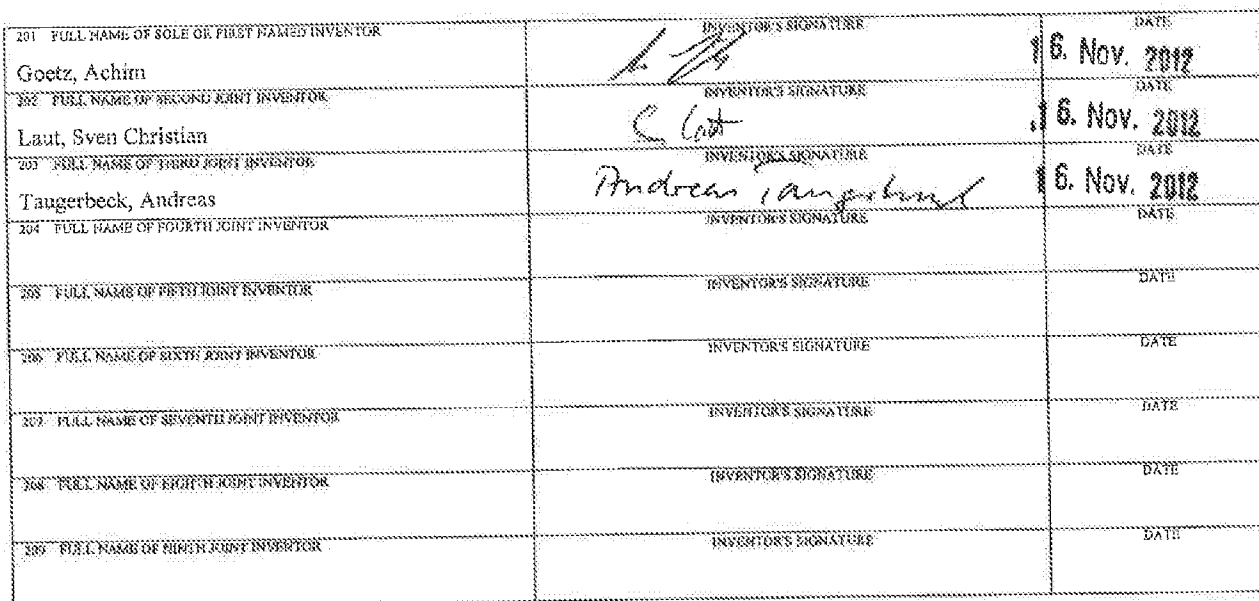 201 FULL NAME OF SOLE OR FIRST NAMED INVENTOR INVENTOR'S SIGNATURE DATE
Goetz, Achim 16. Nov. 2012
202 FULL NAME OF SECOND JOINT INVENTOR INVENTOR'S SIGNATURE DATE
Laut, Sven Christian S. Laut 16. Nov. 2012
203 FULL NAME OF THIRD JOINT INVENTOR INVENTOR'S SIGNATURE DATE
Taugerbeck, Andreas Andreas Taugerbeck 16. Nov. 2012
204 FULL NAME OF FOURTH JOINT INVENTOR INVENTOR'S SIGNATURE DATE
205 FULL NAME OF FIFTH JOINT INVENTOR INVENTOR'S SIGNATURE DATE
206 FULL NAME OF SIXTH JOINT INVENTOR INVENTOR'S SIGNATURE DATE
207 FULL NAME OF SEVENTH JOINT INVENTOR INVENTOR'S SIGNATURE DATE
208 FULL NAME OF EIGHTH JOINT INVENTOR INVENTOR'S SIGNATURE DATE
209 FULL NAME OF NINTH JOINT INVENTOR INVENTOR'S SIGNATURE DATE